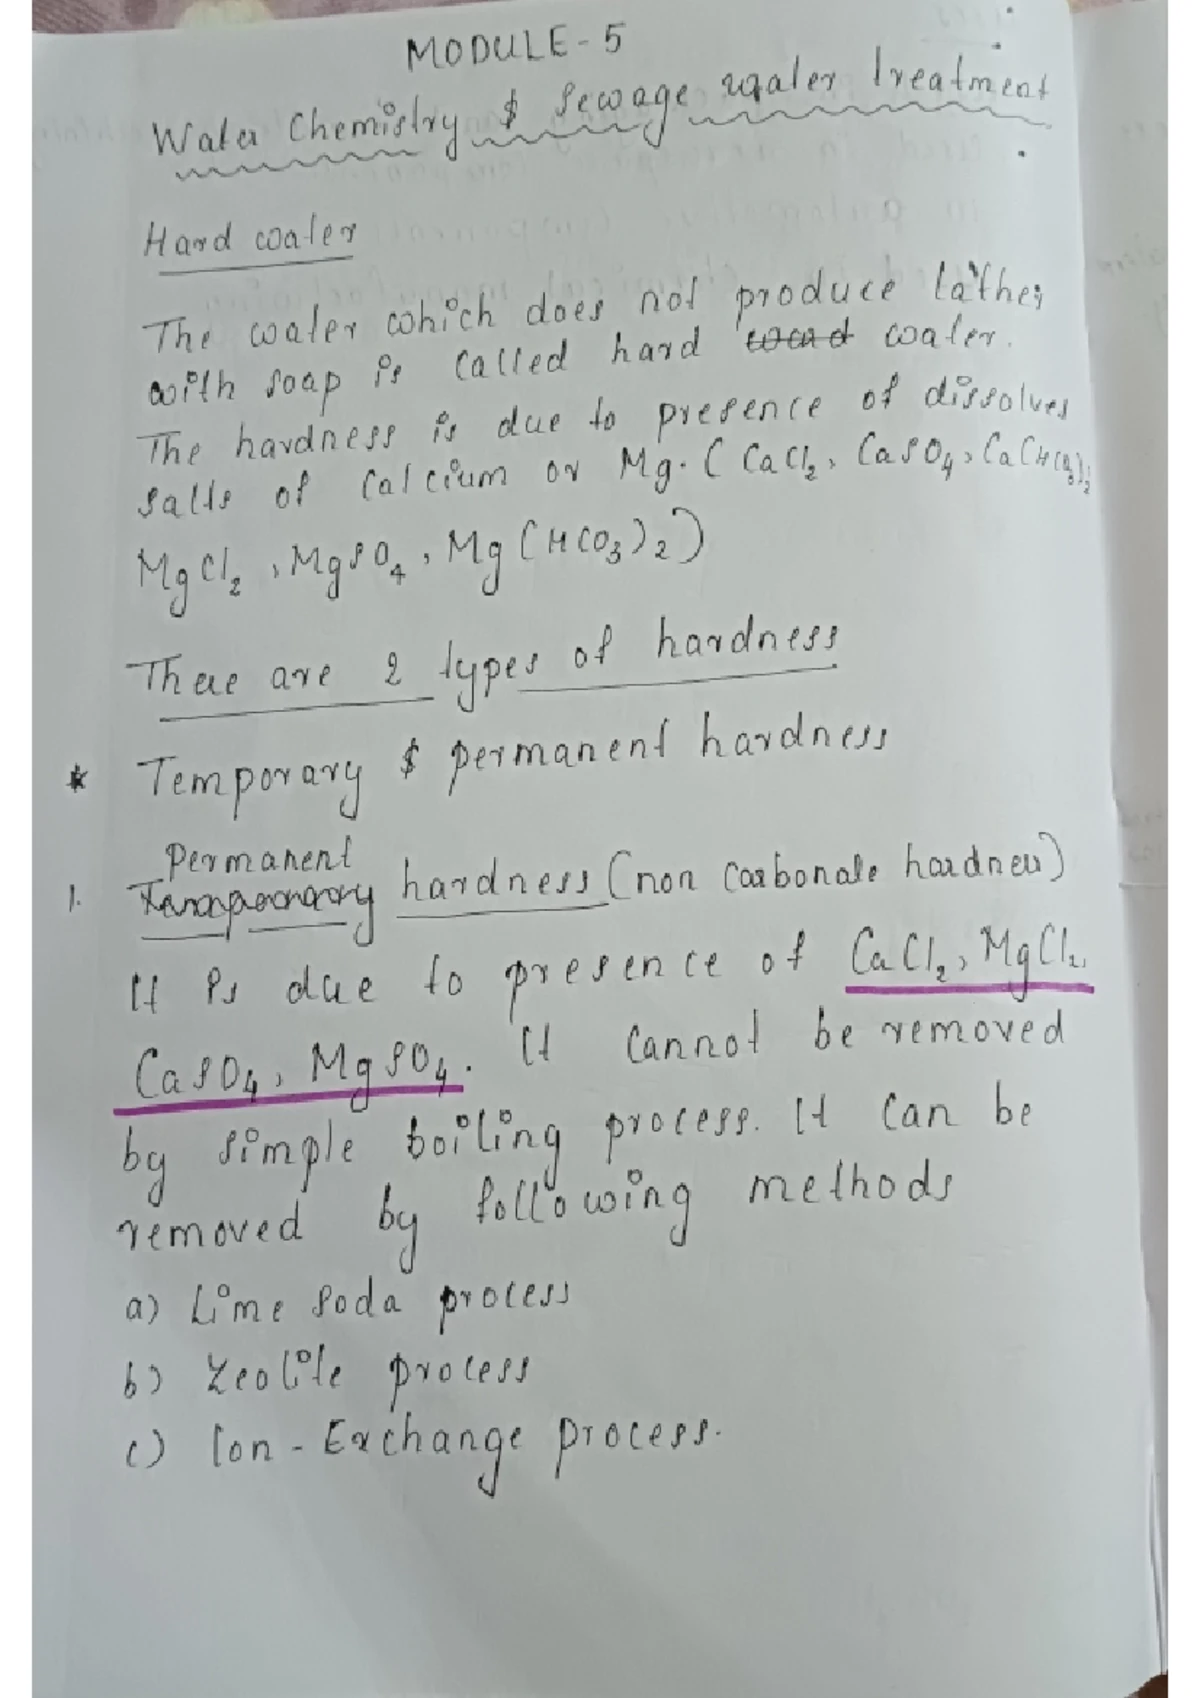 MODULE-5
Water Chemistry & Sewage water treatment
Hard water
The water which does not produce lather
with soap is called hard water.
The hardness is due to presence of dissolves
salts of Calcium or Mg. ( CaCl2, CaSO4, Ca(HCO3)2,
MgCl2, MgSO4, Mg(HCO3)2)
There are 2 types of hardness
* Temporary & permanent hardness
1. Permanent hardness (non carbonate hardness)
It is due to presence of CaCl2, MgCl2,
CaSO4, MgSO4. It cannot be removed
by simple boiling process. It can be
removed by following methods
a) Lime soda process
b) Zeolite process
c) Ion-Exchange process.